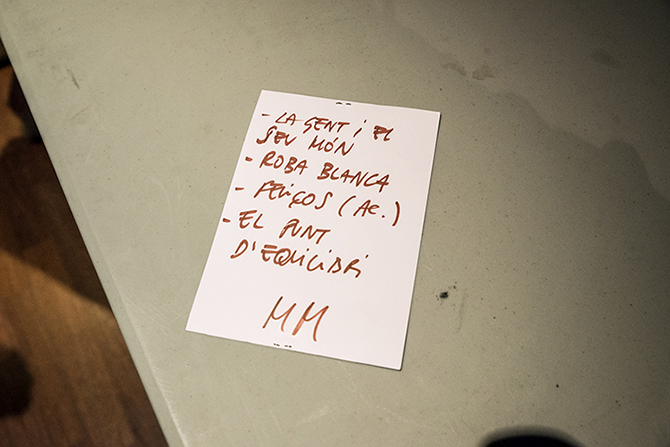 - LA GENT i EL
SEU MÓN
- ROBA BLANCA
- FELIÇOS (Ac.)
- EL PUNT
D'EQUILIBRI
MM